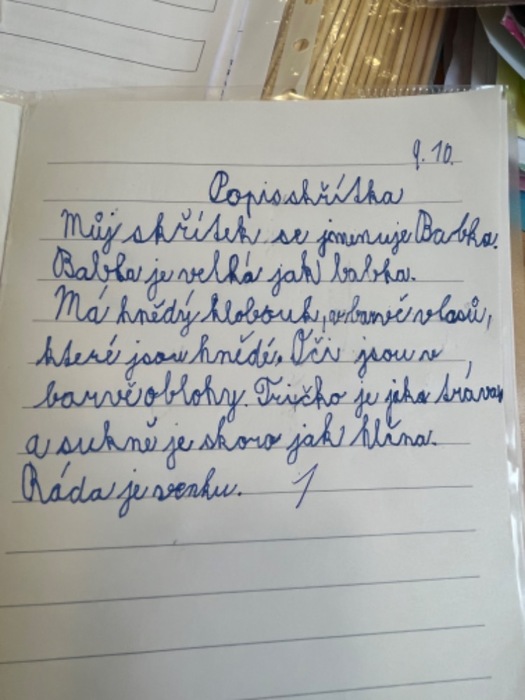 9. 10.
Popis skřítka
Můj skřítek se jmenuje Babka.
Babka je velká jak babka.
Má hnědý klobouk, v barvě vlasů,
které jsou hnědé. Oči jsou v
barvě oblohy. Tričko je jako tráva
a sukně je skoro jak hlína.
Ráda je venku. 1